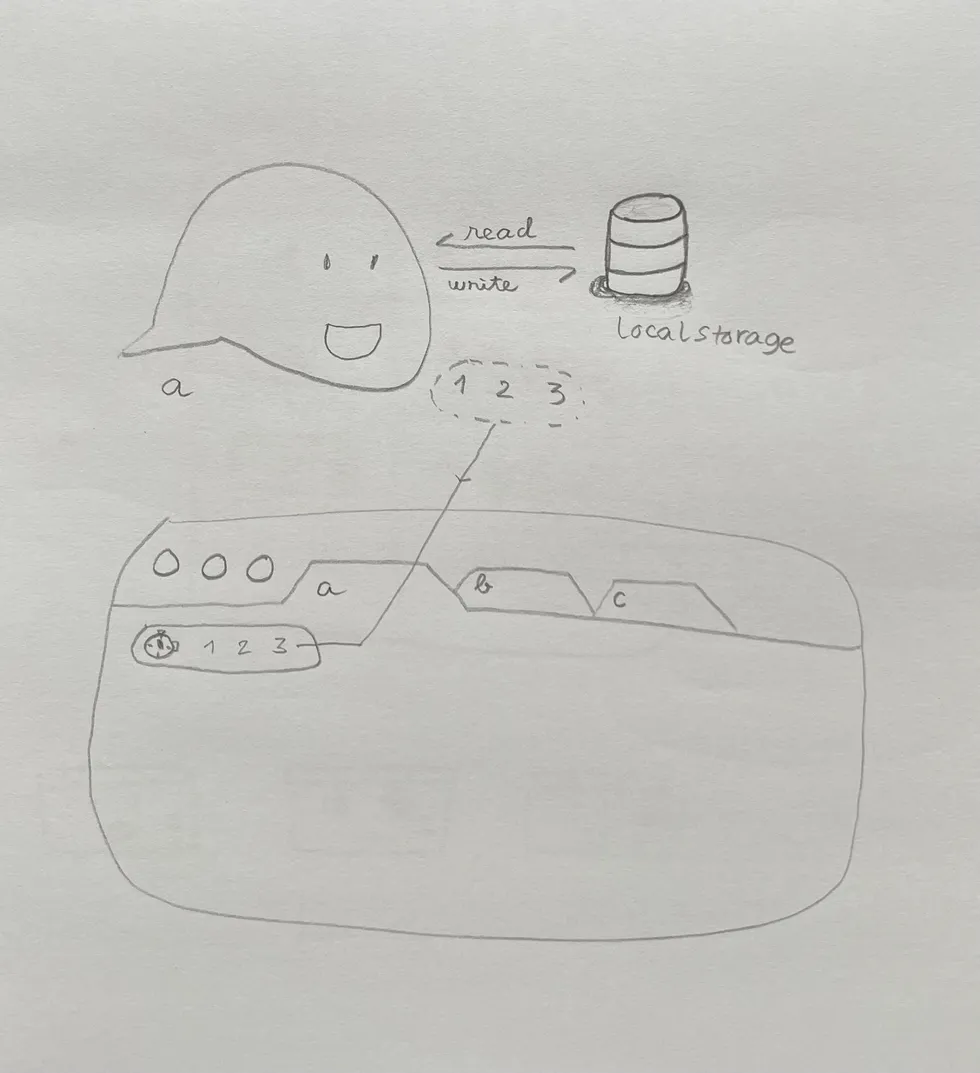 read
write
localstorage
a
1 2 3
a
b
c
1 2 3